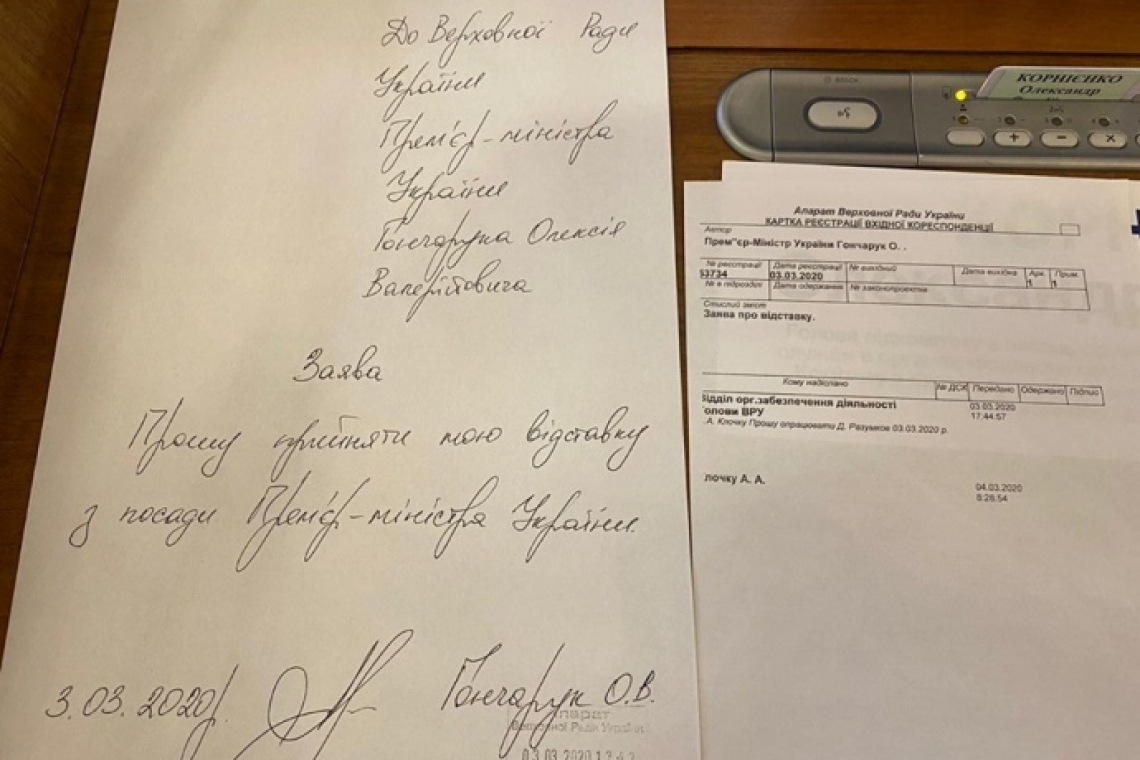 До Верховної Ради
України
Прем'єр-міністра
України
Гончарука Олексія
Валерійовича
Заява
Прошу прийняти мою відставку
з посади Прем'єр-міністра України.
3.03.2020р.
Гончарук О.В.
Апарат
Верховної Ради України
03 03 2020
BOSCH
КОРНІЄНКО
Олександр
Апарат Верховної Ради України
КАРТКА РЕЄСТРАЦІЇ ВХІДНОЇ КОРЕСПОНДЕНЦІЇ
Автор
Прем"єр-Міністр України Гончарук О. .
№ реєстрації Дата реєстрації № вихідний Дата вихідна Арк. Прим.
53734 03.03.2020 1 1
№ в підрозділі Дата одержання № законопроектів
Стислий зміст
Заява про відставку.
Кому надіслано № ДСК Передано Одержано Підпис
Відділ орг.забезпечення діяльності 03.03.2020
олови ВРУ 17:44:57
.А. Клочку Прошу опрацювати Д. Разумков 03.03.2020 р.
лочку А. А. 04.03.2020
8:28:54